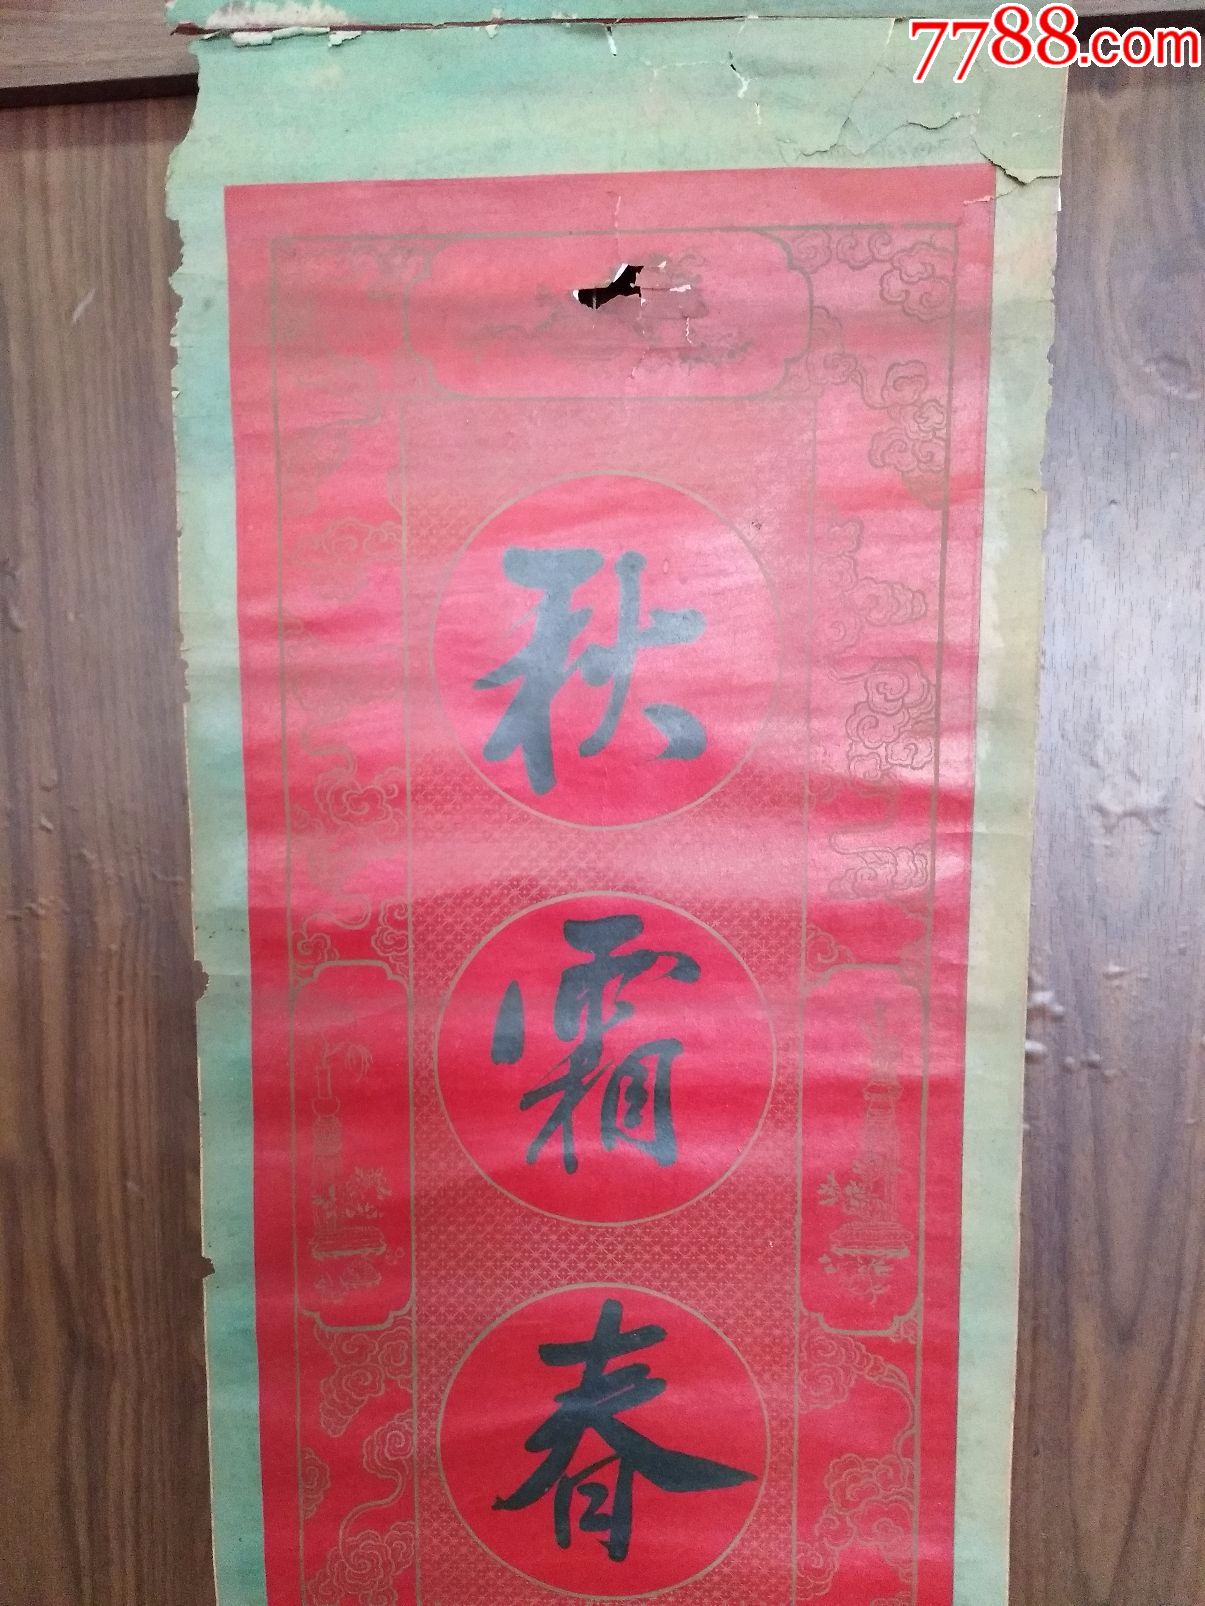 7788.com
秋
霜
春